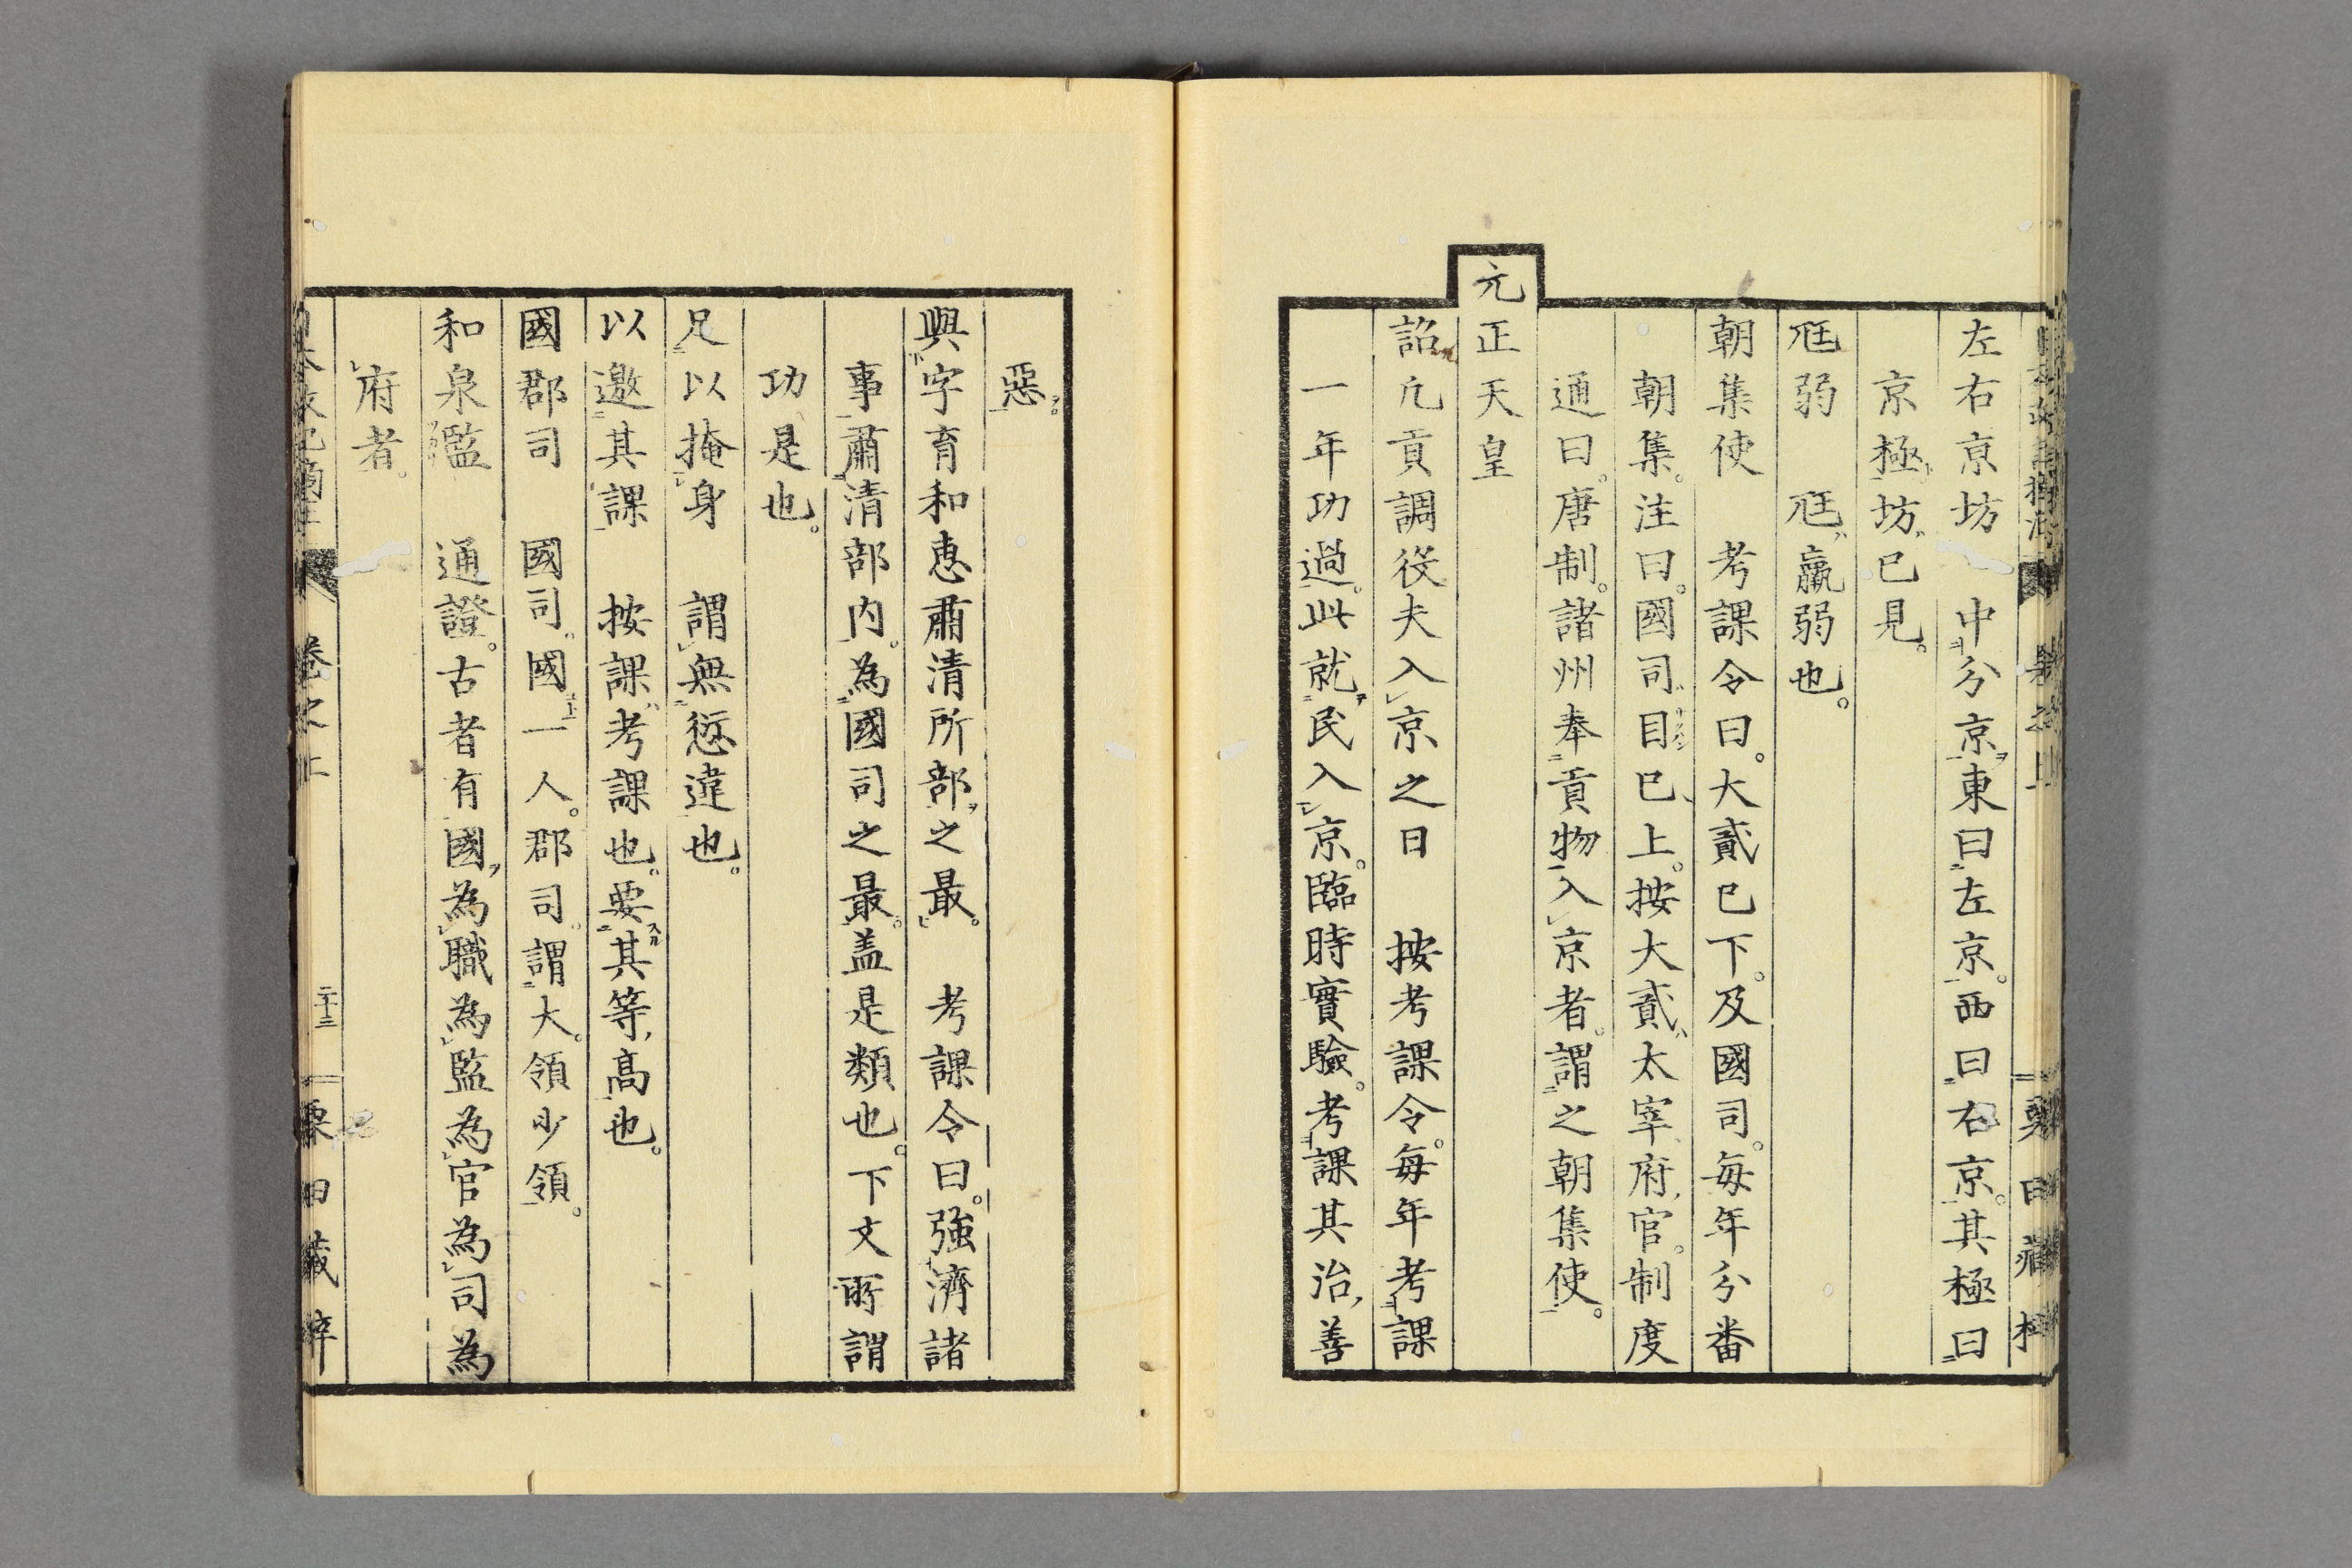 左右京坊　中分京東曰左京。西曰右京。其極曰
京極坊已見。
尫弱　尫羸弱也。
朝集使　考課令曰。大貳已下。及國司。每年分番
朝集。注曰。國司目已上。按大貳太宰府官。制度
通曰。唐制。諸州奉貢物入京者。謂之朝集使。
元正天皇
詔凢貢調役夫入京之日　按考課令。每年考課
一年功過。此就民入京。臨時實驗。考課其治善
惡。
與字育和惠肅清所部之最。　考課令曰。強濟諸
事肅清部内。為國司之最。盖是類也。下文所謂
功是也。
足以掩身　謂無愆違也。
以邀其課　按課考課也。要其等高也。
國郡司　國司。國一人。郡司。謂大。領少領。
和泉監　通證。古者有國為職為監為官為司為
府者。
卷之上
二十三